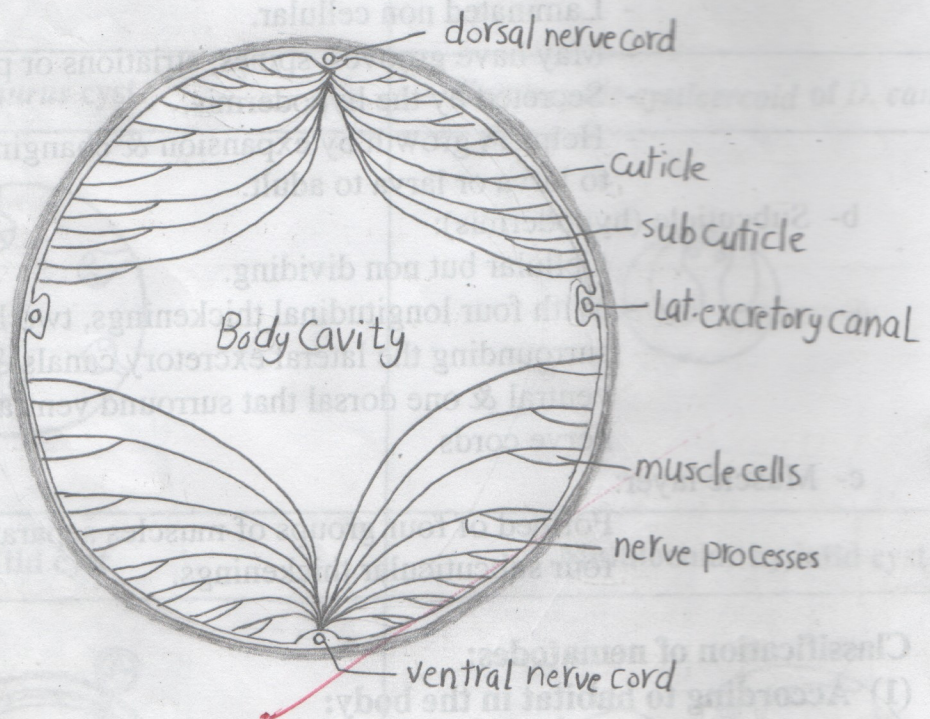 dorsal nerve cord
cuticle
subcuticle
lat. excretory canal
Body Cavity
muscle cells
nerve processes
ventral nerve cord